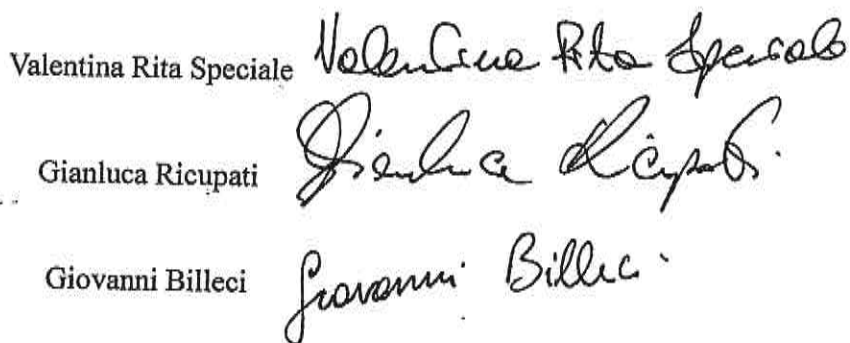 Valentina Rita Speciale Valentina Rita Speciale
Gianluca Ricupati Gianluca Ricupati
Giovanni Billeci Giovanni Billeci